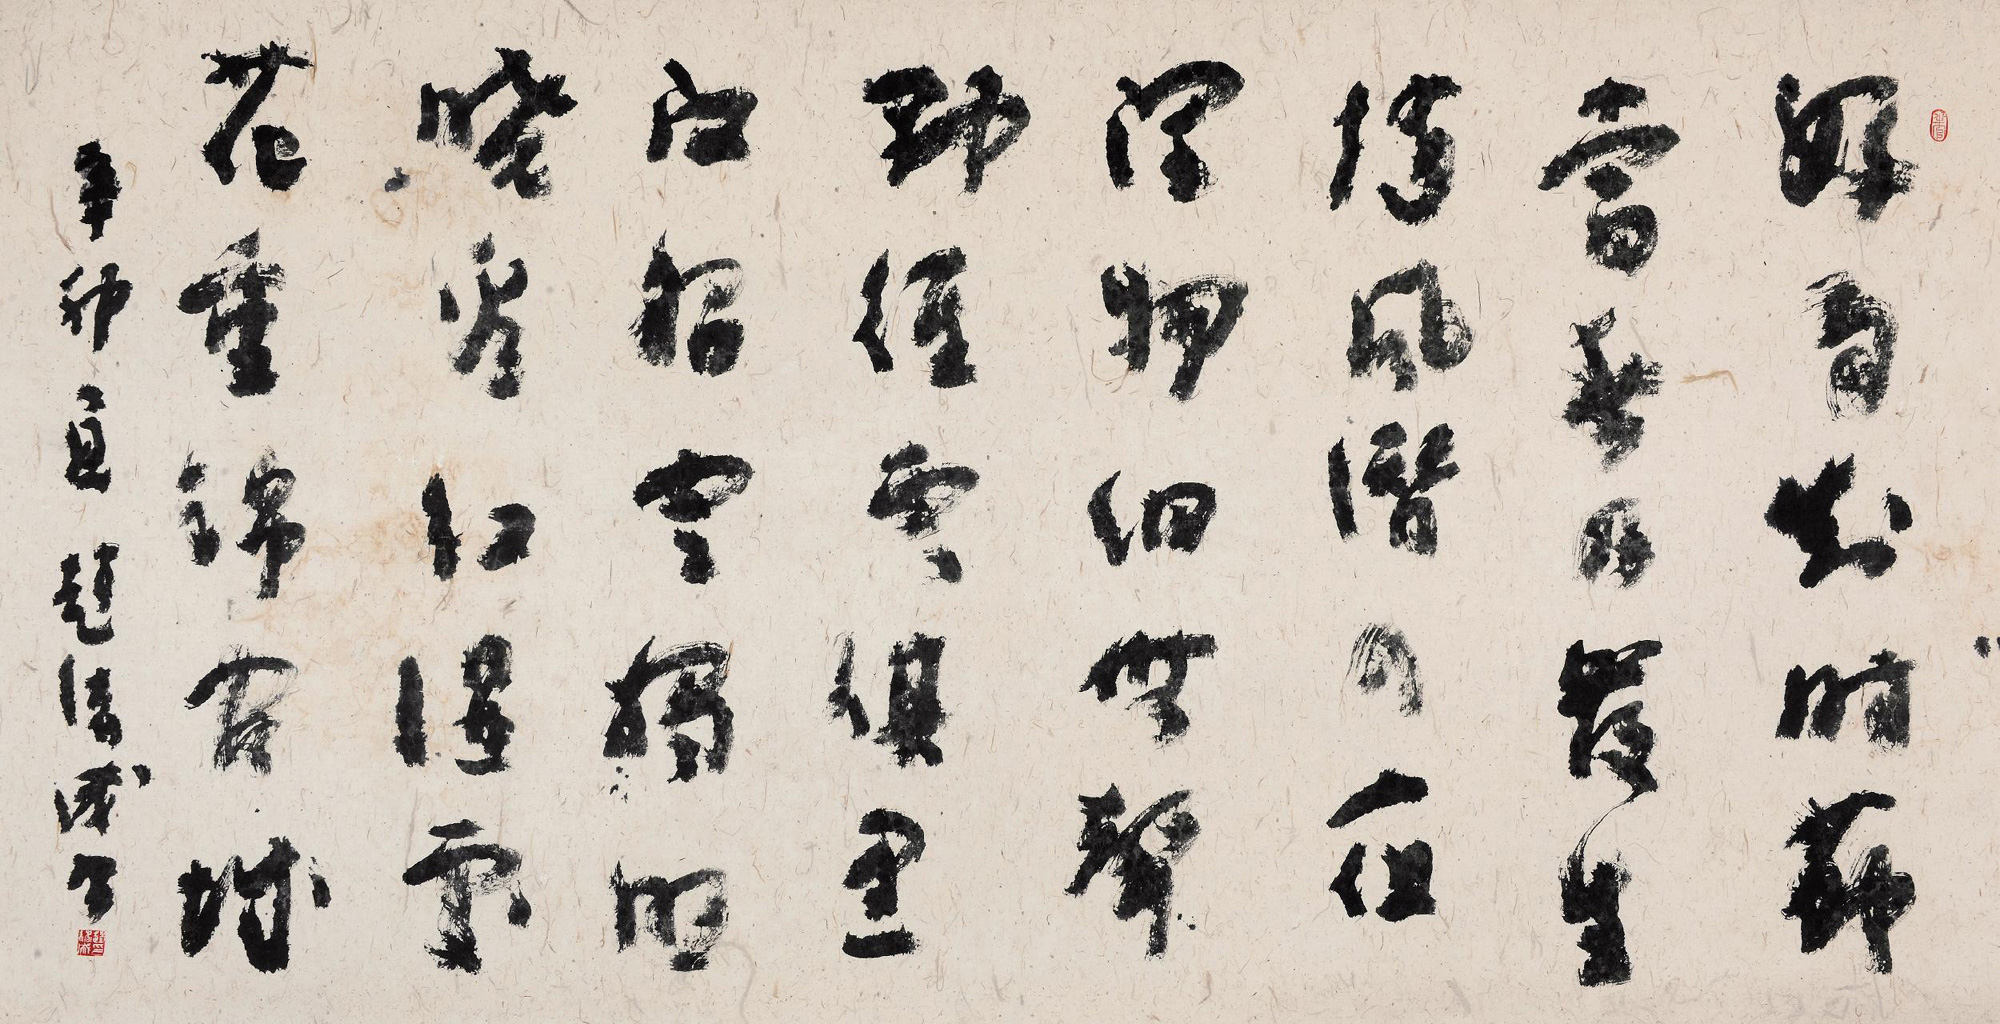 好雨知時節
當春乃發生
隨風潛入夜
潤物細無聲
野徑雲俱黑
江船火獨明
曉看紅濕處
花重錦官城
辛卯夏趙